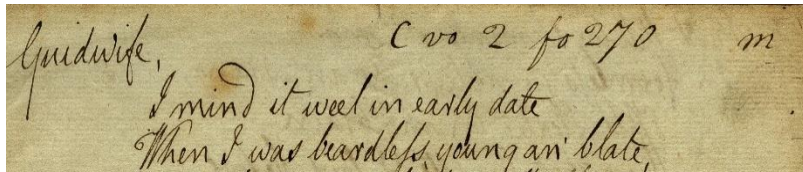 Guidwife, C vo 2 fo 270 m
I mind it weel in early date
When I was beardleſs, young an' blate,